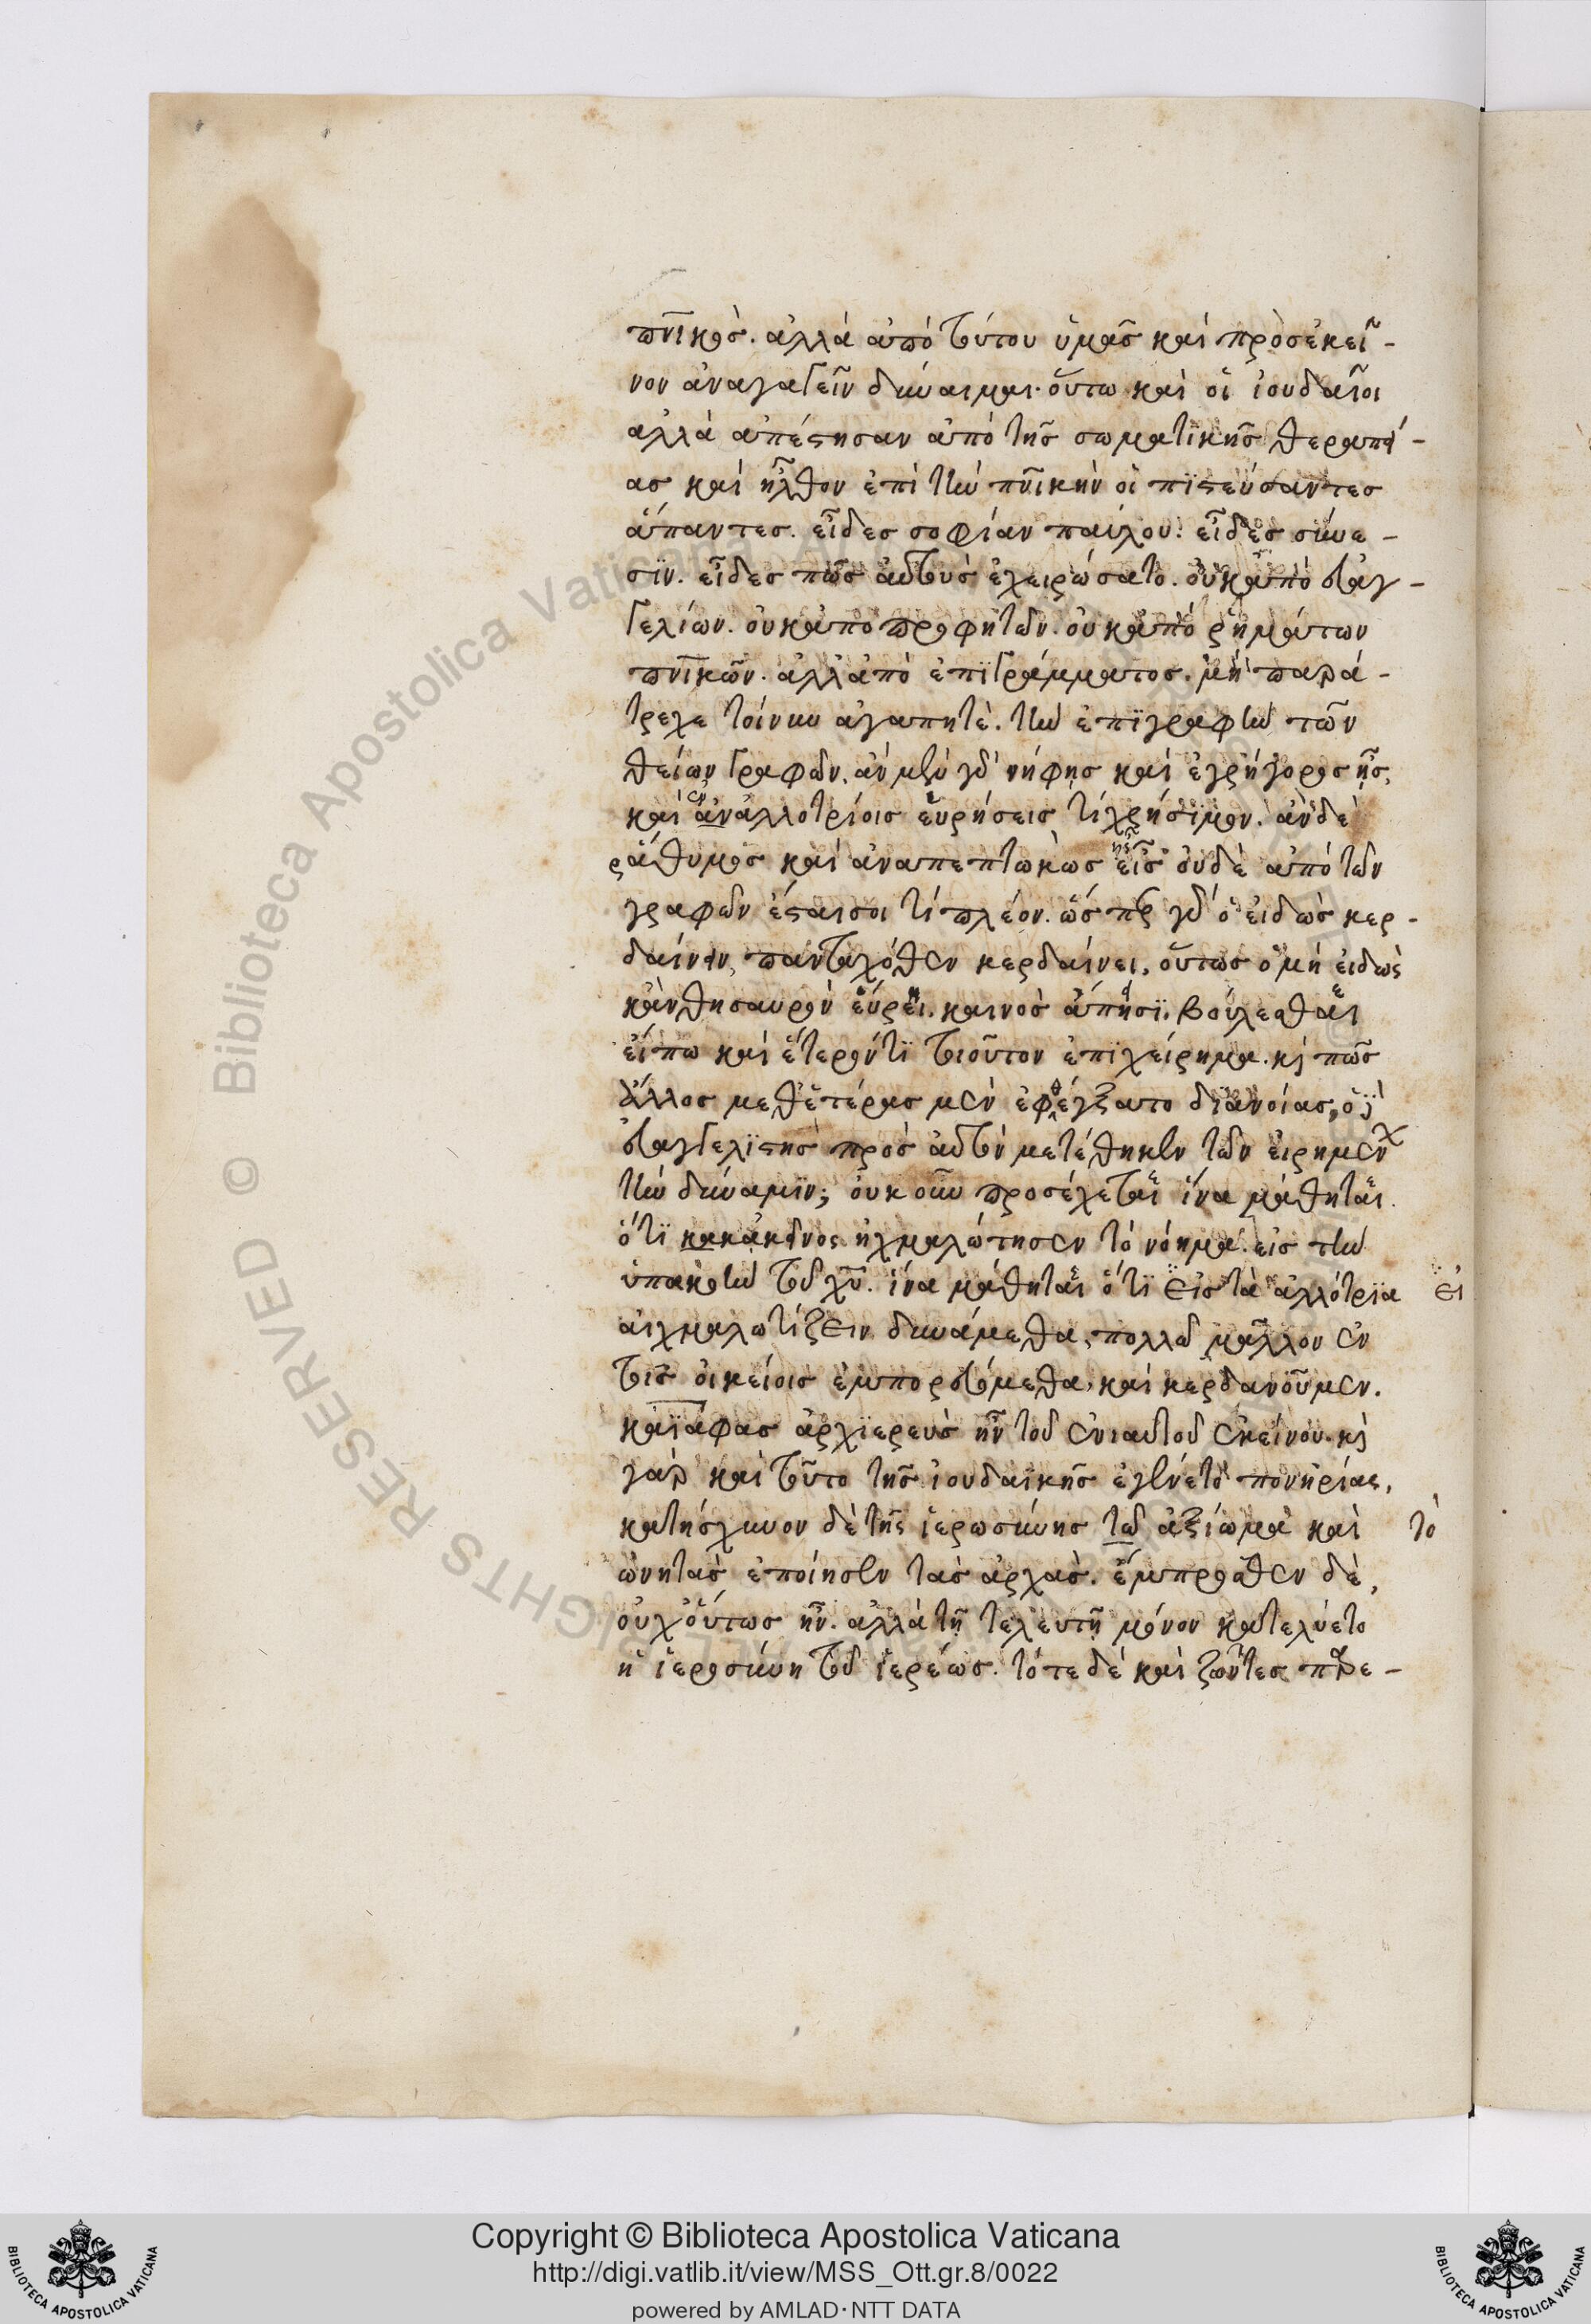 πν̅ικός. ἀλλὰ ἀπὸ τούτου ὑμᾶς καὶ πρὸς ἐκεῖ-
νον ἀναγαγεῖν δύναμαι. οὕτω καὶ οἱ ἰουδαῖοι
ἀλλὰ ἀπέστησαν ἀπὸ τῆς σωματικῆς θεραπεί-
ας καὶ ἦλθον ἐπὶ τὴν πν̅ικὴν οἱ πιστεύσαντες
ἅπαντες. εἶδες σοφίαν παύλου. εἶδες σύνε-
σιν. εἶδες πῶς αὐτοὺς ἐχειρώσατο. οὐκ ἀπὸ εὐαγ-
γελίων. οὐκ ἀπὸ προφητῶν. οὐκ ἀπὸ ῥημάτων
πν̅ικῶν. ἀλλ' ἀπὸ ἐπιγράμματος. μὴ παρά-
τρεχε τοίνυν ἀγαπητὲ. τὴν ἐπιγραφὴν τῶν
θείων γραφῶν. ἂν μὲν γὰρ νήφῃς καὶ ἐγρήγορος ᾖς,
καὶ ἀν ἀλλοτρίοις εὑρήσεις τί χρήσιμον. ἂν δὲ
ῥάθυμος καὶ ἀναπεπτωκὼς εἶς οὐδὲ ἀπὸ τῶν
γραφῶν ἔσται σοι τί πλέον. ὥσπερ γὰρ ὁ εἰδὼς κερ-
δαίνειν, πανταχόθεν κερδαίνει, οὕτως ὁ μὴ εἰδὼς
κἂν θησαυρὸν εὕρει. καινὸς ἄπεισι. βούλεσθαι
εἴπω καὶ ἕτερόν τι τοιοῦτον ἐπιχείρημα. κ̀ πῶς
ἄλλος μεθ' ἑτέρας μὲν ἐφθέγξατο διανοίας, ὁ δὲ
εὐαγγελιστὴς πρὸς αὐτὸν μετέθηκεν τῶν εἰρημένων
τὴν δύναμιν; οὐκοῦν προσέχεται ἵνα μάθηται
ὅτι κακἀκεῖνος ἠχμαλώτησεν τὸ νόημα. εἰς τὴν
ὑπακοὴν τοῦ χυ̅. ἵνα μάθηται ὅτι εἰς τὰ ἀλλότρια εἰ
αἰχμαλωτίζειν δυνάμεθα, πολλῶ μᾶλλον ἐν
τοῖς οἰκείοις ἐμπορευόμεθα, καὶ κερδανοῦμεν.
καϊάφας ἀρχιερεὺς ἦν τοῦ ἐνιαυτοῦ ἐκείνου. κ̀
γὰρ καὶ τοῦτο τῆς ἰουδαϊκῆς ἐγένετο πονηρίας,
κατήσχυνον δὲ τῆς ἱερωσύνης τῶ ἀξίωμα καὶ τὸ
ὠνητὰς ἐποίησεν τὰς ἀρχάς. ἔμπροσθεν δὲ,
οὐχ οὕτως ἦν. ἀλλὰ τῇ τελευτῇ μόνον κατελύετο
ἡ ἱεροσύνη τοῦ ἱερέως. τότε δὲ καὶ ζῶντες παρε-
Copyright © Biblioteca Apostolica Vaticana
http://digi.vatlib.it/view/MSS_Ott.gr.8/0022
powered by AMLAD·NTT DATA